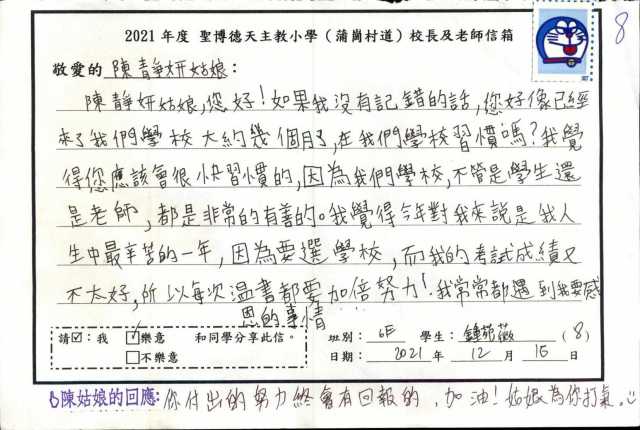 8
2021 年度 聖博德天主教小學（蒲崗村道）校長及老師信箱
敬愛的 陳靜妍姑娘：
陳靜妍姑娘,您好!如果我沒有記錯的話,您好像已經
來了我們學校大約幾個月了,在我們學校習慣嗎?我覺
得您應該會很快習慣的,因為我們學校,不管是學生還
是老師,都是非常的有善的。我覺得今年對我來說是我人
生中最辛苦的一年,因為要選學校,而我的考試成績又
不太好,所以每次温書都要加倍努力!我常常都遇到我要感
恩的事情
請☑：我 ☑樂意 和同學分享此信。
□不樂意
班別： 6E 學生： 鍾苑薇 ( 8 )
日期： 2021 年 12 月 16 日
陳姑娘的回應: 你付出的努力終會有回報的,加油!姑娘為你打氣。